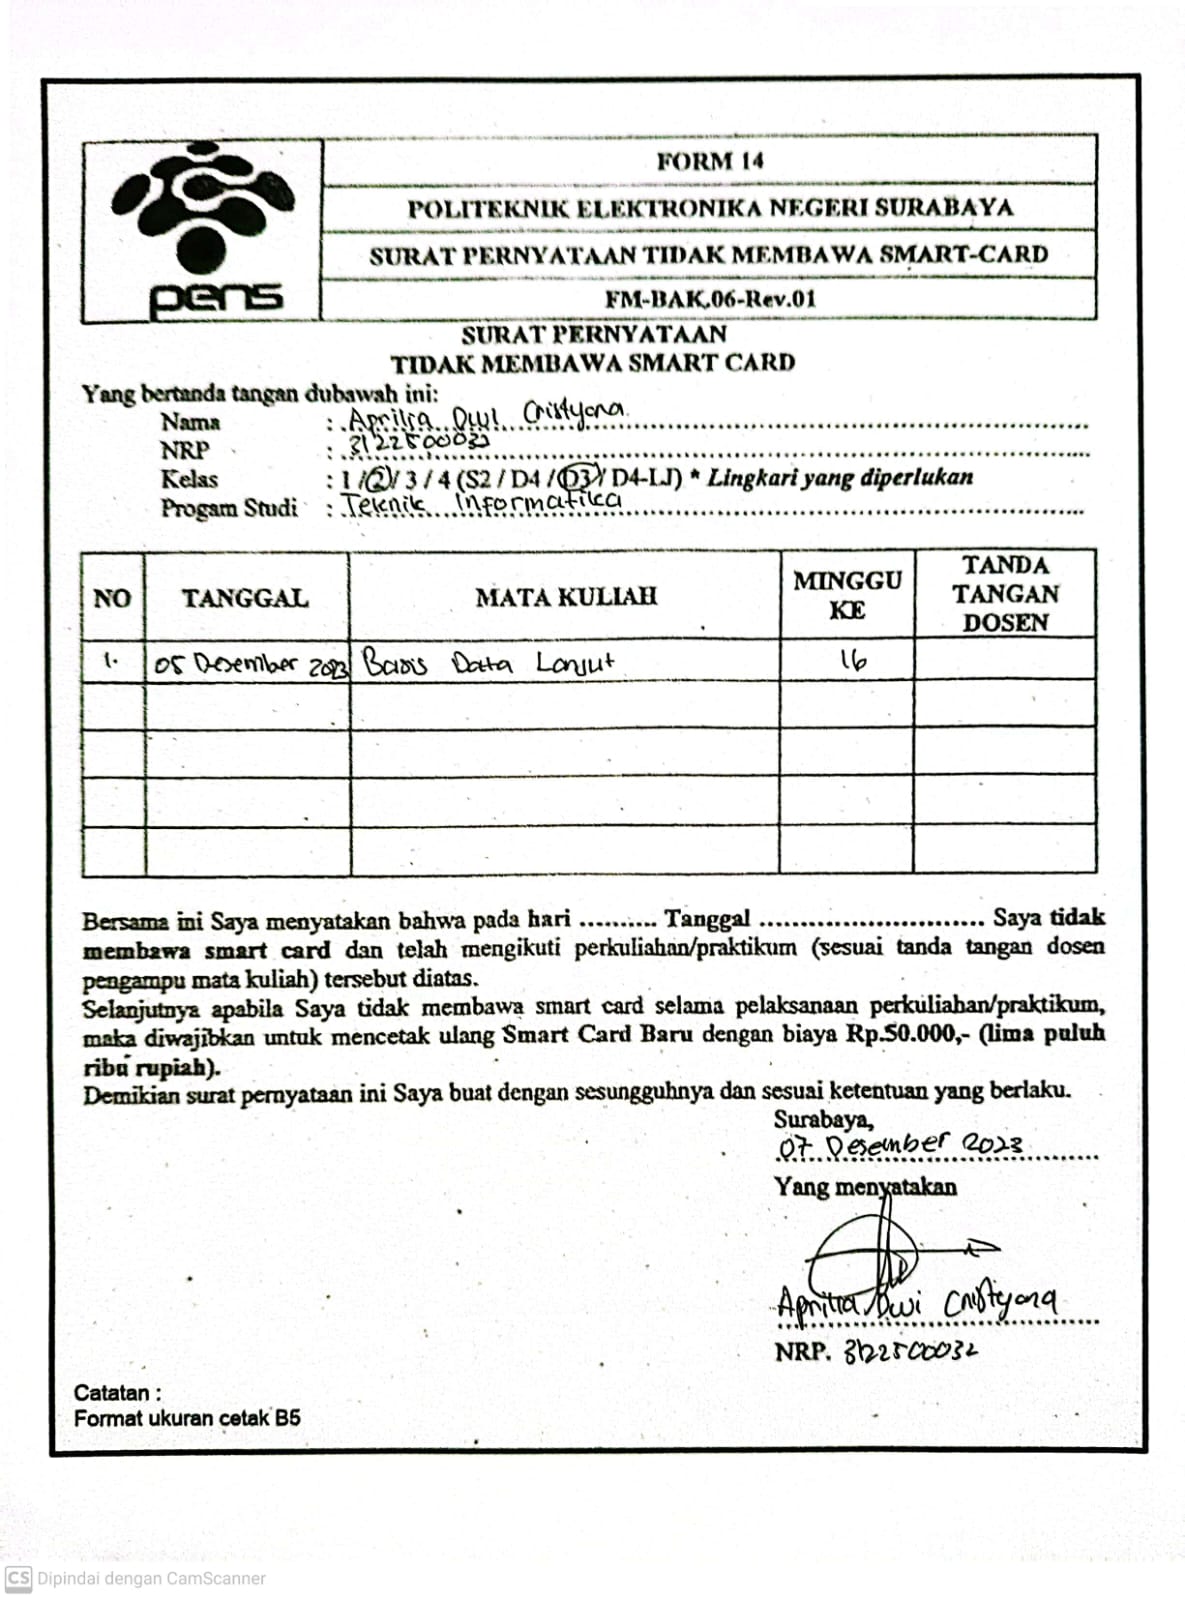 pens
FORM 14
POLITEKNIK ELEKTRONIKA NEGERI SURABAYA
SURAT PERNYATAAN TIDAK MEMBAWA SMART-CARD
FM-BAK.06-Rev.01
SURAT PERNYATAAN
TIDAK MEMBAWA SMART CARD
Yang bertanda tangan dubawah ini:
Nama : Aprilia Dwi Cristyana
NRP : 3122500032
Kelas : 1 / 2 / 3 / 4 (S2 / D4 / D3 / D4-LJ) * Lingkari yang diperlukan
Progam Studi : Teknik Informatika
NO TANGGAL MATA KULIAH MINGGU KE TANDA TANGAN DOSEN
1. 05 Desember 2023 Basis Data Lanjut 16
Bersama ini Saya menyatakan bahwa pada hari .......... Tanggal ............................ Saya tidak
membawa smart card dan telah mengikuti perkuliahan/praktikum (sesuai tanda tangan dosen
pengampu mata kuliah) tersebut diatas.
Selanjutnya apabila Saya tidak membawa smart card selama pelaksanaan perkuliahan/praktikum,
maka diwajibkan untuk mencetak ulang Smart Card Baru dengan biaya Rp.50.000,- (lima puluh
ribu rupiah).
Demikian surat pernyataan ini Saya buat dengan sesungguhnya dan sesuai ketentuan yang berlaku.
Surabaya,
07 Desember 2023
Yang menyatakan
Aprilia Dwi Cristyana
NRP. 3122500032
Catatan :
Format ukuran cetak B5
CS Dipindai dengan CamScanner